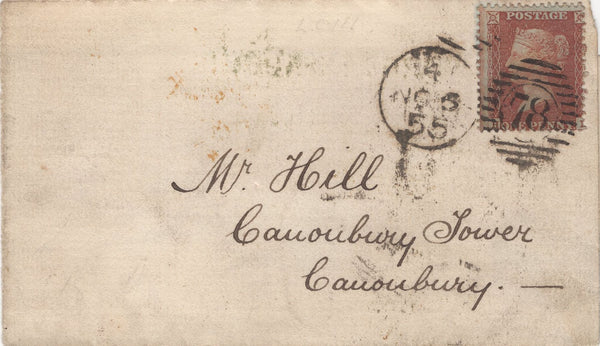 POSTAGE
14
NO 5
55
78
ONE PENNY
Mr. Hill
Canonbury Tower
Canonbury. —